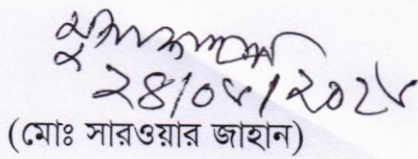 ২৪/০৮/২০২৮
(মোঃ সারওয়ার জাহান)